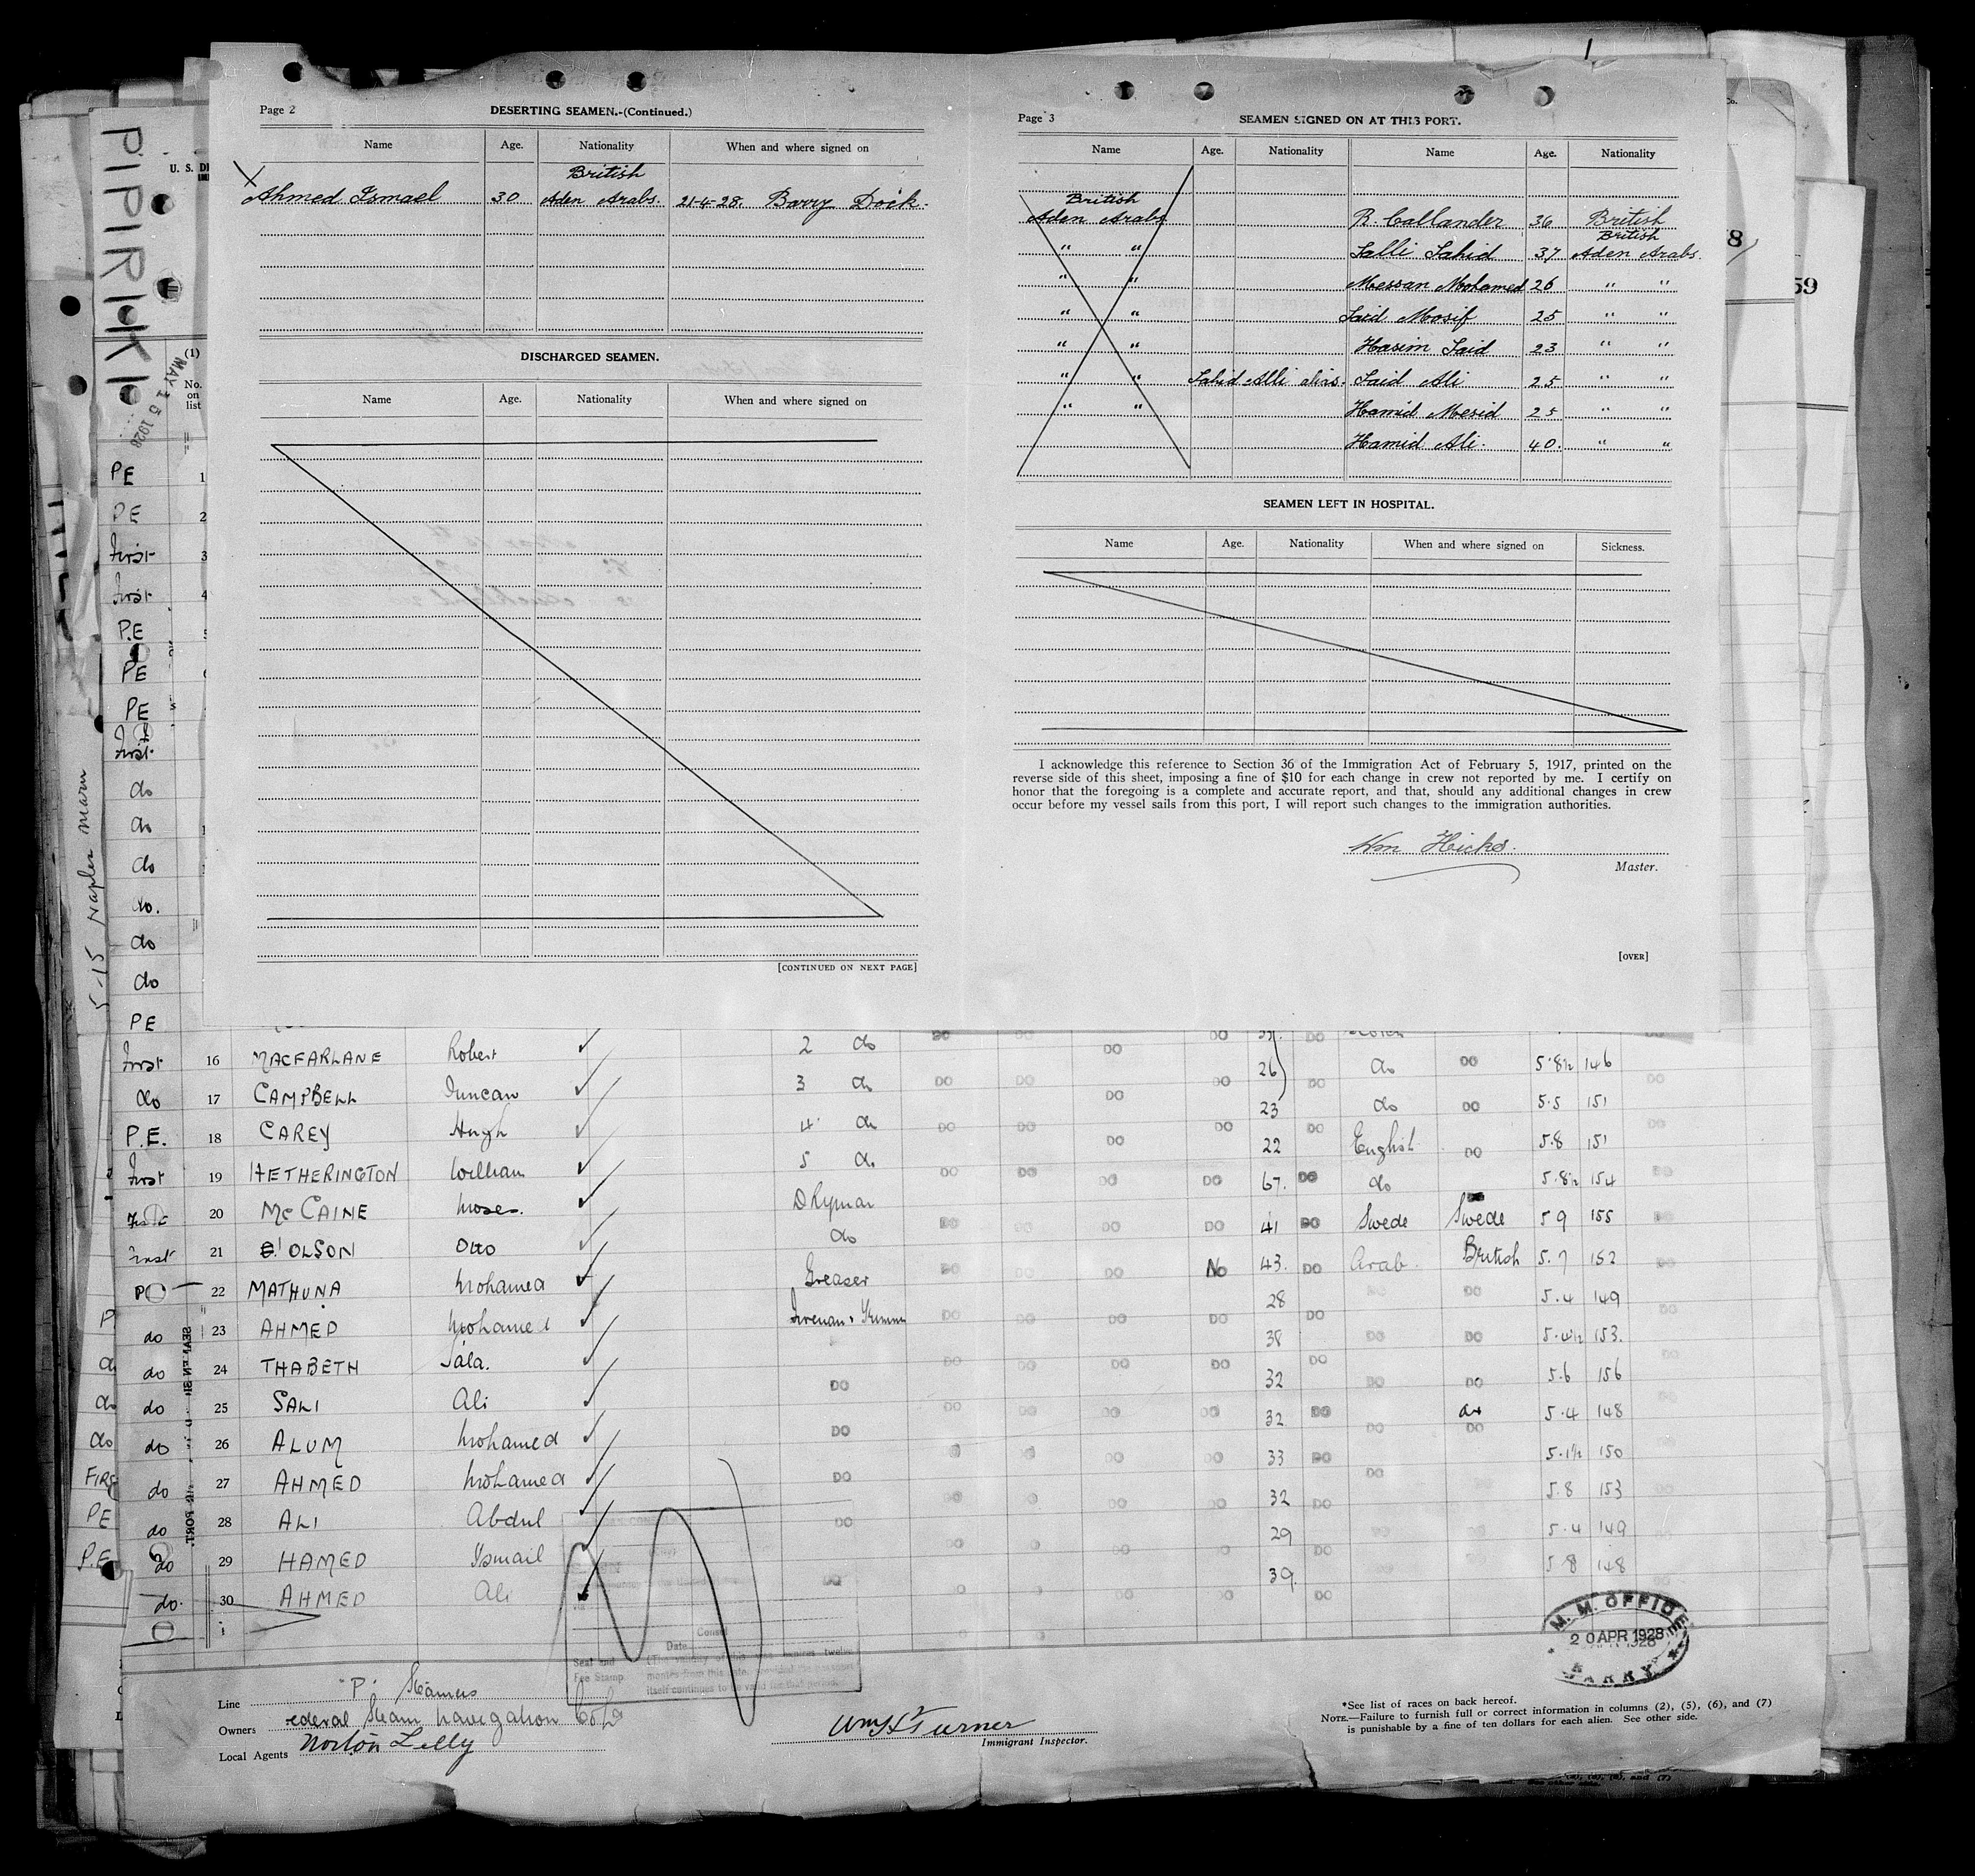 Page 2
DESERTING SEAMEN.-(Continued.)
Name Age. Nationality When and where signed on
British
X Ahmed Ismael 30 Aden Arabs. 21-4-28. Barry Dock.
DISCHARGED SEAMEN.
Name Age. Nationality When and where signed on
[CONTINUED ON NEXT PAGE]
Page 3
SEAMEN SIGNED ON AT THIS PORT.
Name Age. Nationality Name Age. Nationality
British
Aden Arabs R. Callander 36 British
British
" " Salli Sahid 37 Aden Arabs.
" " Messan Mohamed 26 " "
" " Said Mosif 25 " "
" " Hasim Said 23 " "
" " Sahid Alli alias. Said Ali 25 " "
" " Hamid Mesid 25 " "
Hamid Ali. 40. " "
SEAMEN LEFT IN HOSPITAL.
Name Age. Nationality When and where signed on Sickness.
I acknowledge this reference to Section 36 of the Immigration Act of February 5, 1917, printed on the
reverse side of this sheet, imposing a fine of $10 for each change in crew not reported by me. I certify on
honor that the foregoing is a complete and accurate report, and that, should any additional changes in crew
occur before my vessel sails from this port, I will report such changes to the immigration authorities.
Wm Hicks.
Master.
[OVER]
PIPIRIKI
U. S. D
MAY 15 1928
(1)
No.
on
list
5-15 naples maru
59
PE 1
PE 2
First 3
First 4
P.E 5
PE
PE
First
do
do
do
do.
do
do
PE
First 16 MACFARLANE Robert 2 do DO DO DO DO 26 DO do DO 5.8½ 146
do 17 CAMPBELL Duncan 3 do DO DO DO DO 23 DO do DO 5.5 151
P.E. 18 CAREY Hugh 4 do DO DO DO DO 22 DO English DO 5.8 151
First 19 HETHERINGTON William 5 do DO DO DO DO 67. DO do 5.8½ 154
20 McCAINE Moses. DKyman DO DO DO DO 41 DO Swede Swede 5 9 155
First 21 OLSON Otto do DO DO DO No 43. DO Arab British 5.7 152
22 MATHUNA Mohamed Greaser DO DO DO DO 28 DO DO 5.4 149
do 23 AHMED Mohamed DO DO DO DO 38 DO DO DO 5.4½ 153.
do 24 THABETH Sala. DO DO DO DO 32 DO DO DO 5.6 156
do 25 SALI Ali DO DO DO DO DO 32 DO do 5.4 148
do 26 ALUM Mohamed DO DO DO 33 DO DO DO 5.1½ 150
do 27 AHMED Mohamed DO DO DO 32 DO DO 5.8 153
do 28 ALI Abdul DO DO DO 29 DO 5.4 149
do 29 HAMED Ismail DO DO 39. DO 5 8 148
do. 30 AHMED Ali DO DO DO DO DO
Consul
Date
Seal and
Fee Stamp
M. M. OFFICE
20 APR 1928
BARRY
Line "P" Steamers
Owners ederal Steam Navigation Co Ld
Local Agents Norton Lilly
Wm S Turner
Immigrant Inspector.
*See list of races on back hereof.
NOTE.—Failure to furnish full or correct information in columns (2), (5), (6), and (7)
is punishable by a fine of ten dollars for each alien. See other side.